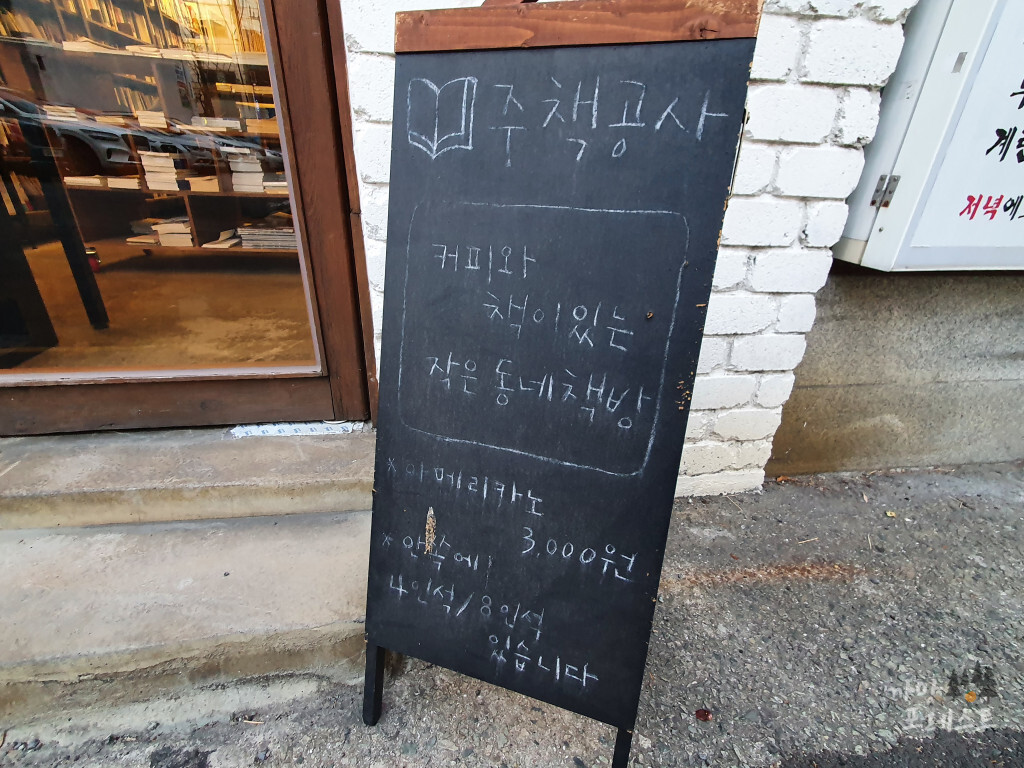 주책공사
커피와
책이있는
작은 동네책방
*아메리카노
3,000원
*안쪽에
4인석/8인석
있습니다
저녁에
포레스트